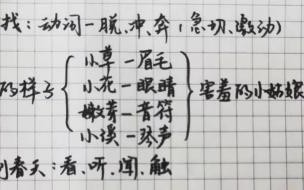 找：动词－脱、冲、奔（急切、激动）
的样子
小草－眉毛
小花－眼睛
嫩芽－音符
小溪－琴声
害羞的小姑娘
到春天：看、听、闻、触